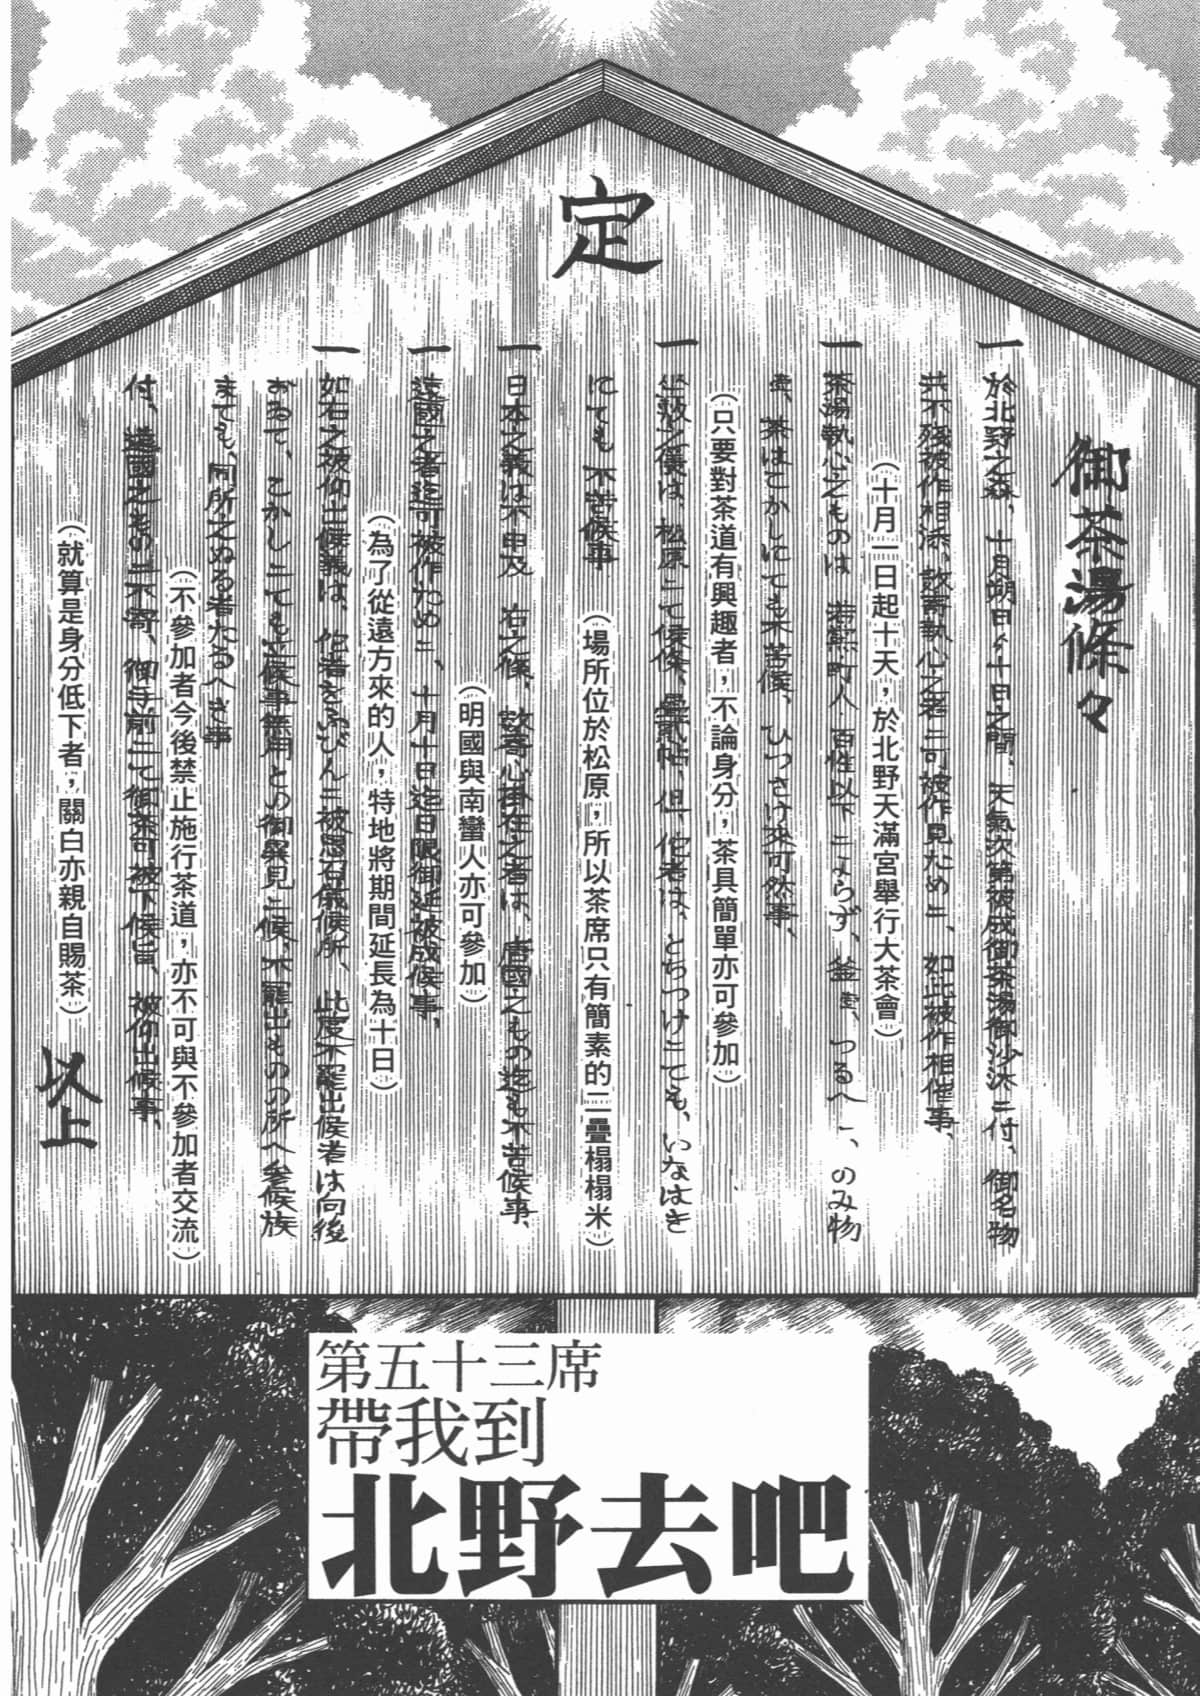 定
御茶湯條々
一 於北野之森、十月朔日ゟ十日之間、天氣次第被成御茶湯御沙汰ニ付、御名物
共不残被作相添、数寄執心之者ニ可被作見ためニ、如此被作相催事、
（十月一日起十天，於北野天滿宮舉行大茶會）
一 茶湯執心之ものは 若黨町人 百姓以下ニよらず、釜壹、つるへ一、のみ物
壹、茶はこかしにても不苦候、ひつさけ來可然事、
（只要對茶道有興趣者，不論身分，茶具簡單亦可參加）
一 坐敷之儀は、松原ニて候條、疊貳帖、但、侘者は、とちつけニても、いなはき
にても 不苦候事
（場所位於松原，所以茶席只有簡素的二疊榻榻米）
一 日本之義は不申及 右之條、数寄心掛在之者は、唐國之もの迄も不苦候事、
（明國與南蠻人亦可參加）
一 遠國之者迄可被作ためニ、十月十日迄日限御延被成候事、
（為了從遠方來的人，特地將期間延長為十日）
一 如右之被仰出候義は、侘者をふびんニ被思召儀候所、此度不罷出候者は向後
おゐて、こかしニても立候事無用との御異見ニ候、不罷出ものの所へ參候族
まても、同所之ぬる者たるへき事
（不參加者今後禁止施行茶道，亦不可與不參加者交流）
付、遠國之ものニ不寄、御手前ニて御茶可被下候旨、被仰出候事、
（就算是身分低下者，關白亦親自賜茶）
以上
第五十三席
帶我到
北野去吧